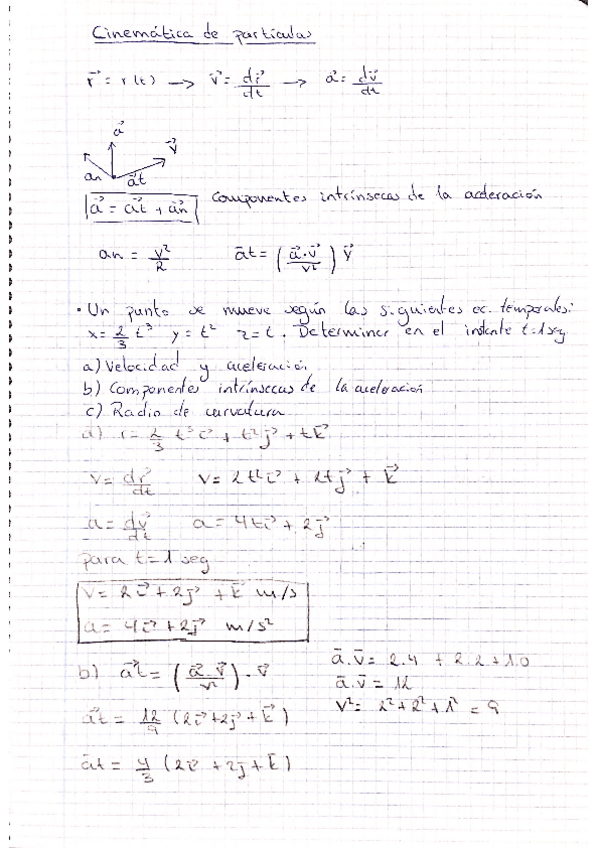 Cinemática de partículas
r⃗ = r(t) → v⃗ = dr⃗/dt → a⃗ = dv⃗/dt
a⃗
v⃗
an
a⃗t
a⃗ = a⃗t + a⃗n Componentes intrínsecas de la aceleración
an = v²/R āt = (a⃗·v⃗/v²) v⃗
• Un punto se mueve según las siguientes ec. temporales:
x = 2/3 t³ y = t² z = t. Determinar en el instante t=1seg
a) Velocidad y aceleración
b) Componentes intrínsecas de la aceleración
c) Radio de curvatura
a) r = 2/3 t³ i⃗ + t² j⃗ + t k⃗
v = dr⃗/dt v = 2t² i⃗ + 2t j⃗ + k⃗
a = dv⃗/dt a = 4t i⃗ + 2 j⃗
para t=1 seg
v = 2i⃗ + 2j⃗ + k⃗ m/s
a = 4i⃗ + 2j⃗ m/s²
b) a⃗t = (a⃗·v⃗/v²)·v⃗
ā.v̄ = 2.4 + 2.2 + 1.0
ā.v̄ = 12
v² = 2² + 2² + 1² = 9
a⃗t = 12/9 (2i⃗ + 2j⃗ + k⃗)
āt = 4/3 (2i⃗ + 2j + k̄)